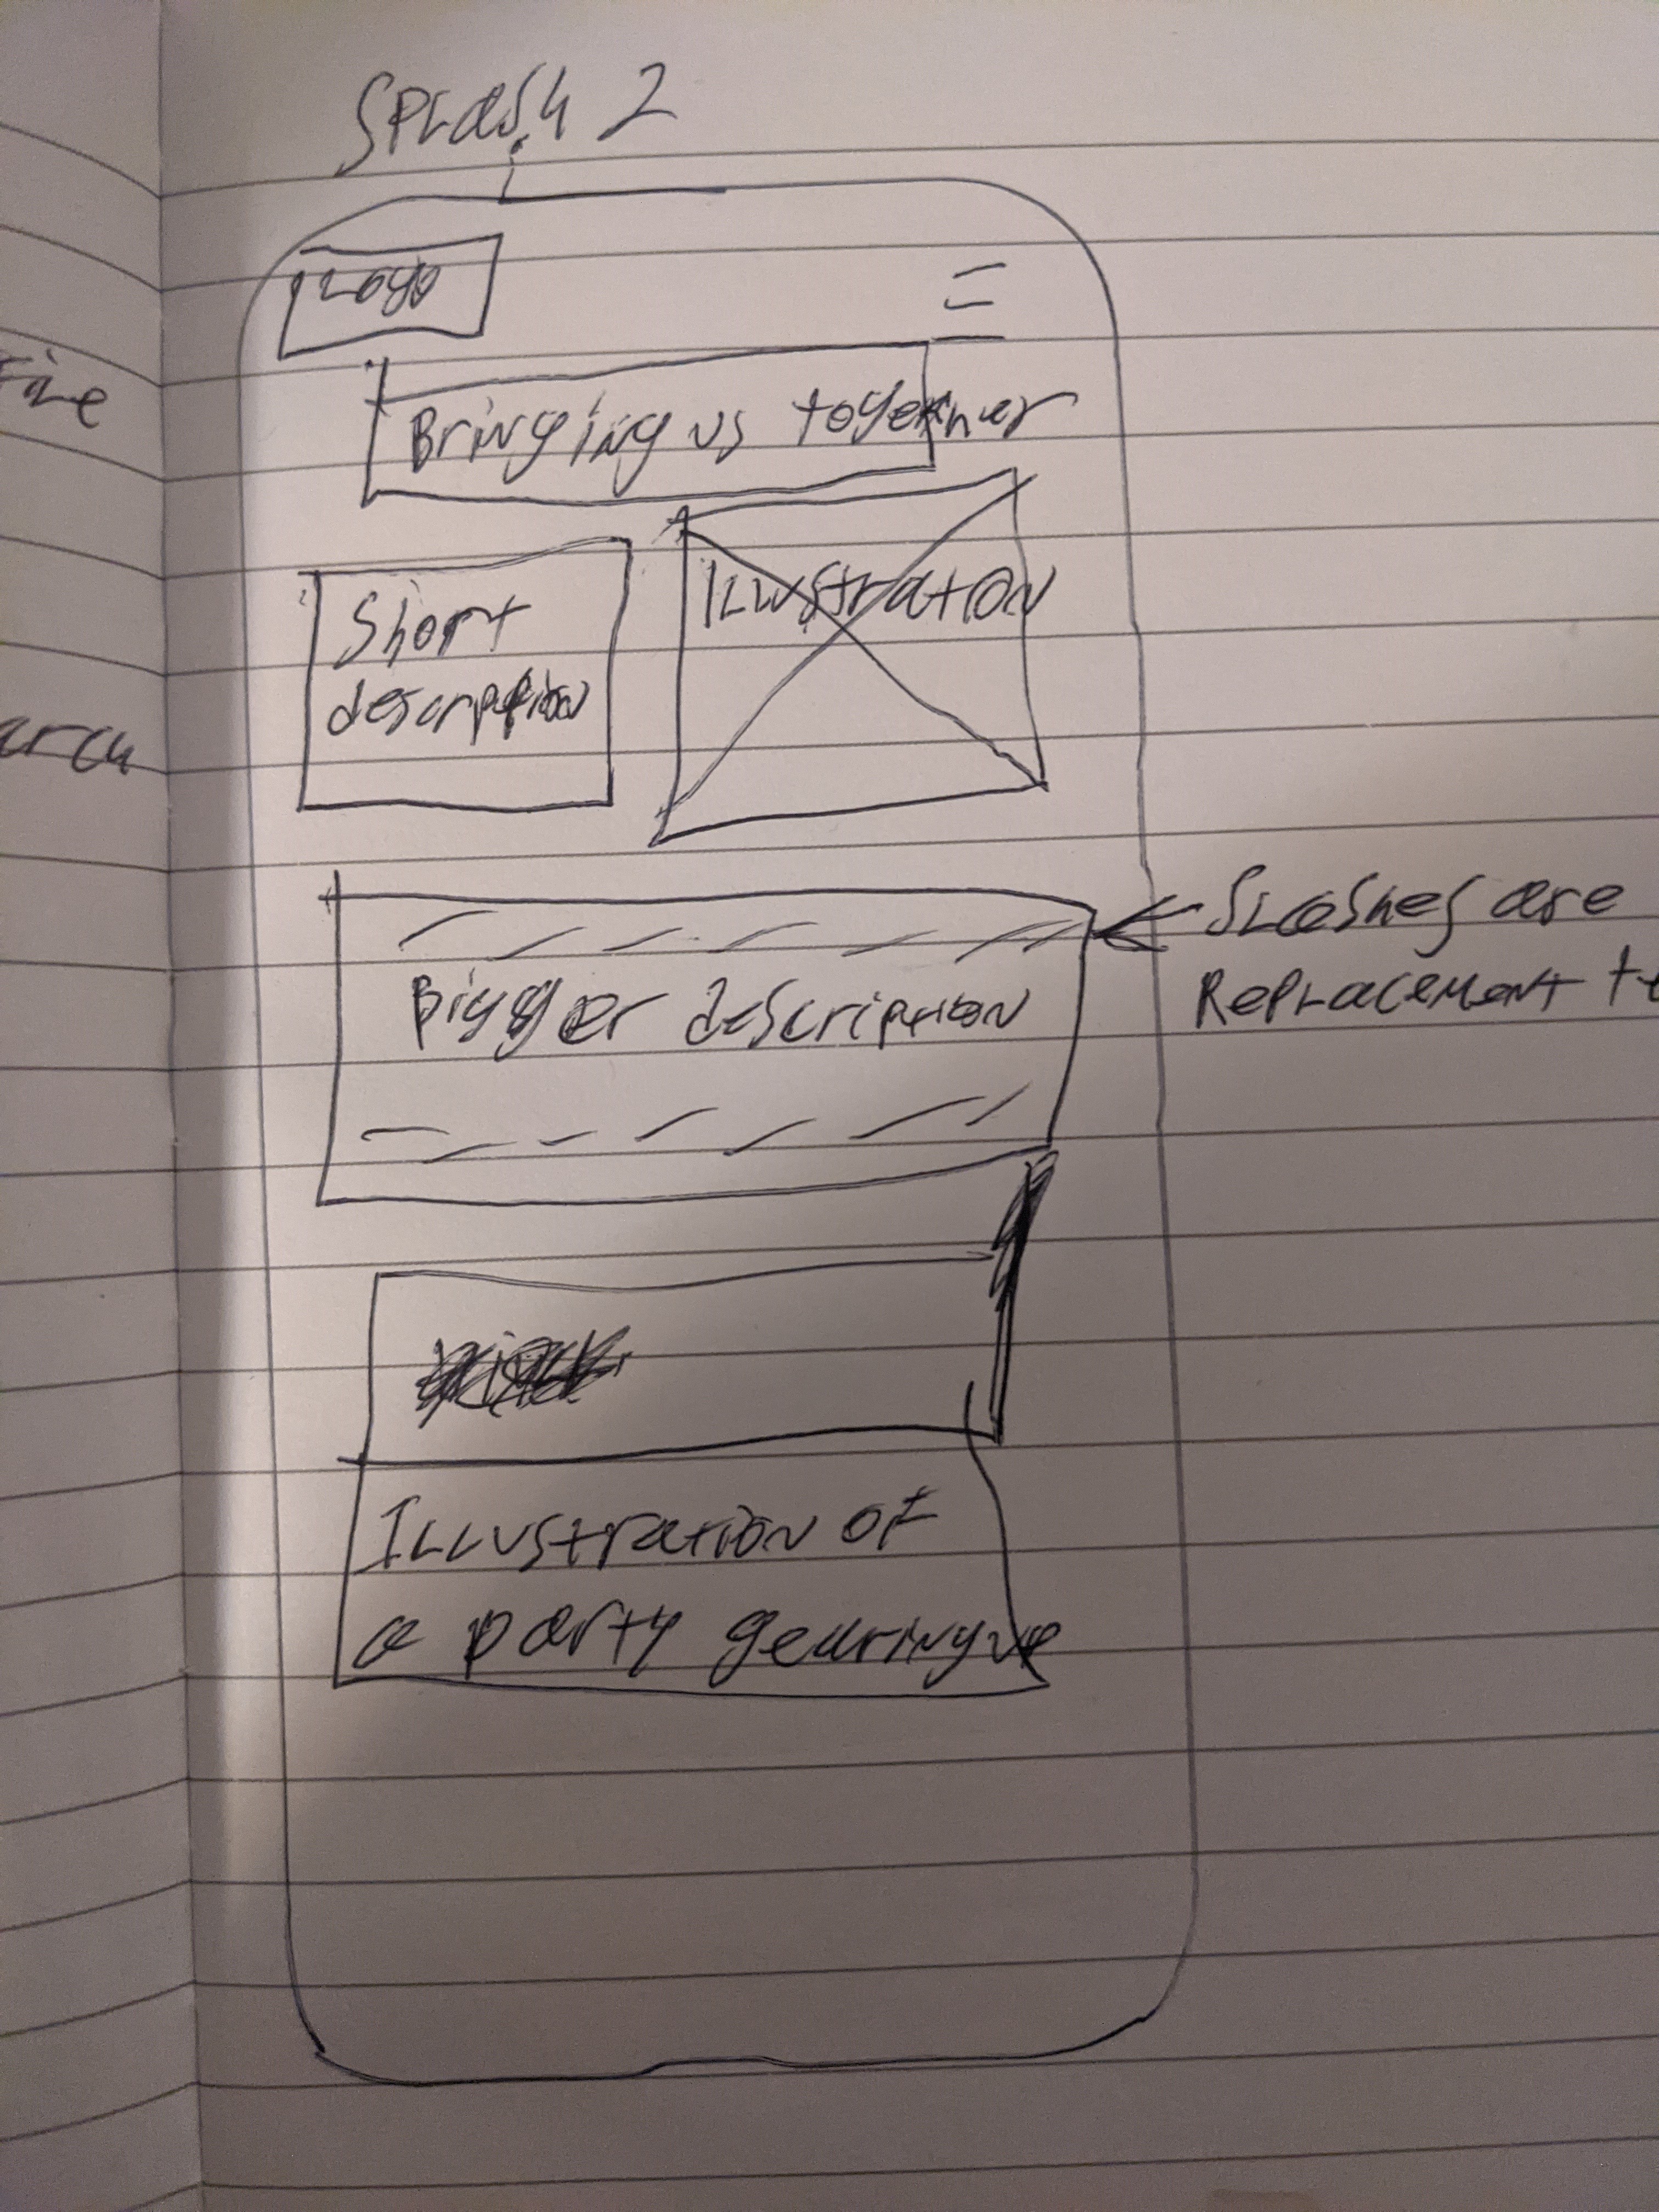 Splash 2
Logo
Bringing us together
Short
description
Illustration
Slashes are
Replacement
Bigger description
Illustration of
a party gearing up